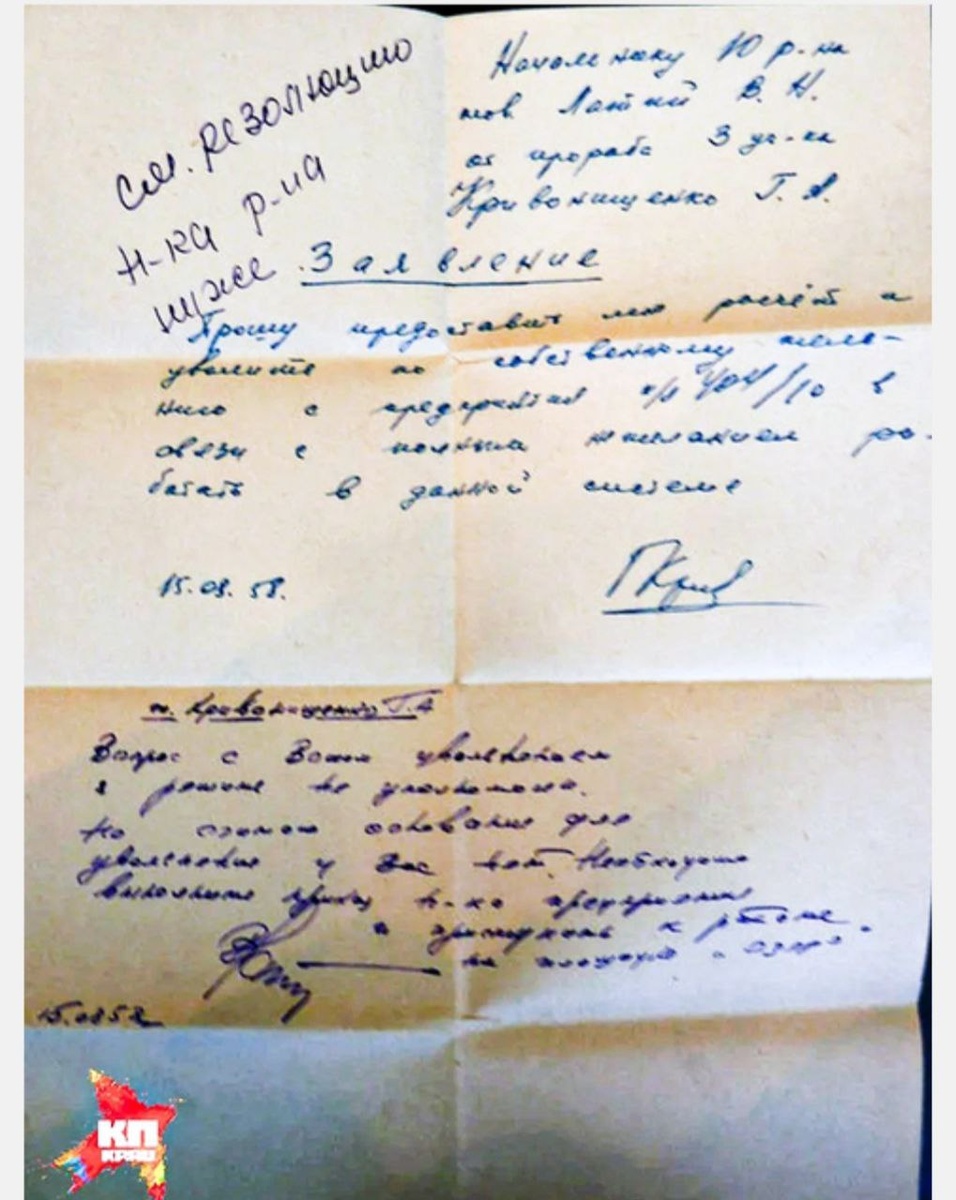 см. резолюцию
н-ка р-на
ниже
Начальнику 10 р-на
тов Лаптий В. Н.
от прораба 3 уч-ка
Кривонищенко Г. А.
Заявление
Прошу предоставить мне расчёт и
уволить по собственному жела-
нию с предприятия п/я 404/10 в
связи с полным нежеланием ра-
ботать в данной системе
15.08.58.
ГКрив
т. Кривонищенко Г. А
Вопрос с Вашим увольнением
я решать не уполномочен.
Но основание для
увольнения у Вас нет. Необходимо
выполнить приказ н-ка предприятия
и приступить к работе
на площадке "озеро".
15.08.58
КП